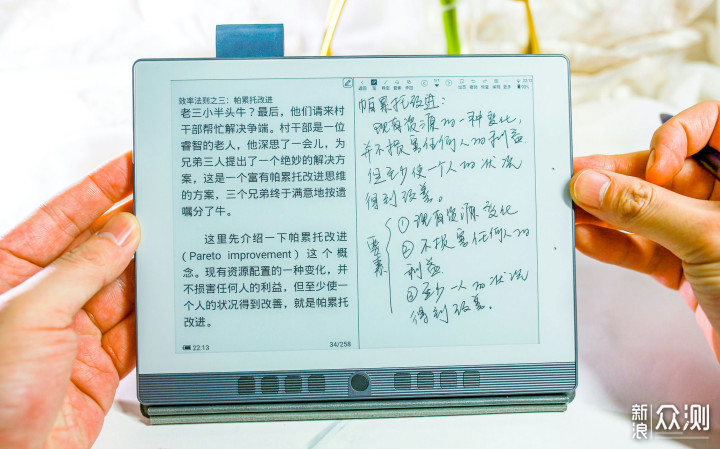 效率法则之三：帕累托改进
老三小半头牛？最后，他们请来村
干部帮忙解决争端。村干部是一位
睿智的老人，他深思了一会儿，为
兄弟三人提出了一个绝妙的解决方
案，这是一个富有帕累托改进思维
的方案，三个兄弟终于满意地按遗
嘱分了牛。
这里先介绍一下帕累托改进
(Pareto improvement) 这个概
念。现有资源配置的一种变化，并
不损害任何人的利益，但至少使一
个人的状况得到改善，就是帕累托
改进。
22:13
34/258
帕累托改进：
现有资源的一种变化，
并不损害任何人的利益
但至少使一个人的状况
得利改善。
要素
①现有资源变化
②不损害任何人的
利益
③至少一人的状况
得利改善.
新浪众测